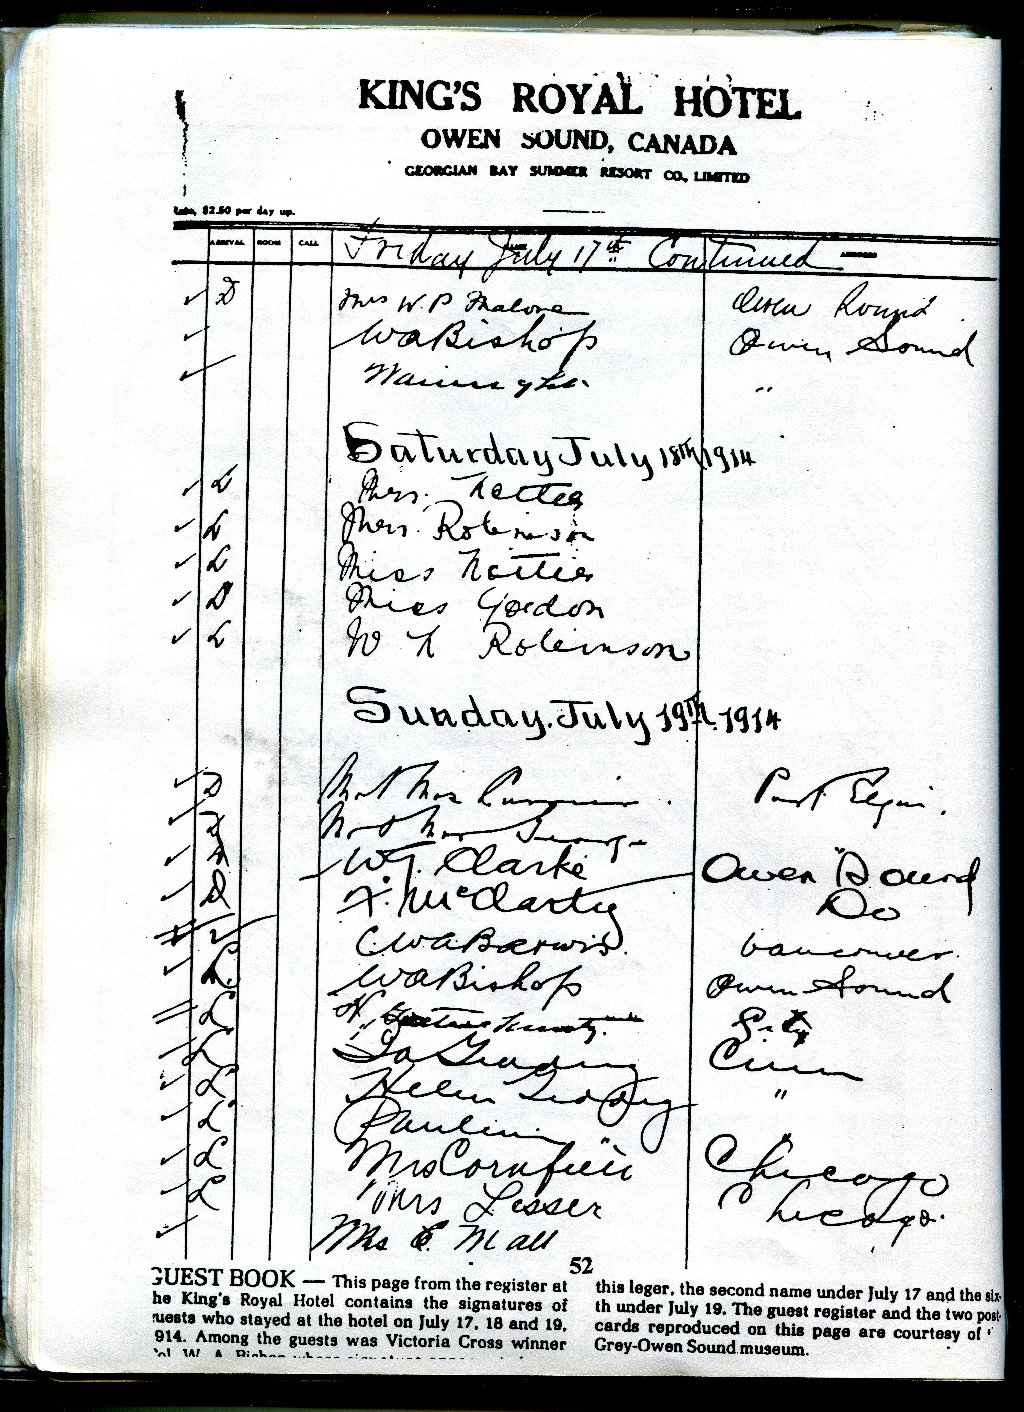 KING'S ROYAL HOTEL
OWEN SOUND, CANADA
GEORGIAN BAY SUMMER RESORT CO., LIMITED
Rate, $2.50 per day up.
ARRIVAL ROOM CALL NAME ADDRESS
Friday July 17th Continued
D Mrs W. P Malone Owen Sound
WA Bishop Owen Sound
"
Saturday July 18TH 1914
L Mrs.
L Mrs. Robinson
L Miss
D Miss Gordon
L W Robinson
Sunday. July 19TH. 1914
D Mr & Mrs Port Elgin.
Mr & Mrs George
W. T. Clarke Owen Sound
D McClarty Do
CWA Vancouver.
L. WA Bishop Owen Sound
L City
L
L Helen "
L Pauline "
L Mrs Cornfield Chicago
L Mrs Lesser Chicago.
Mrs E. Mall
52
GUEST BOOK — This page from the register at
he King's Royal Hotel contains the signatures of
uests who stayed at the hotel on July 17, 18 and 19,
914. Among the guests was Victoria Cross winner
W. A. Bishop
this leger, the second name under July 17 and the six-
th under July 19. The guest register and the two post-
cards reproduced on this page are courtesy of
Grey-Owen Sound museum.